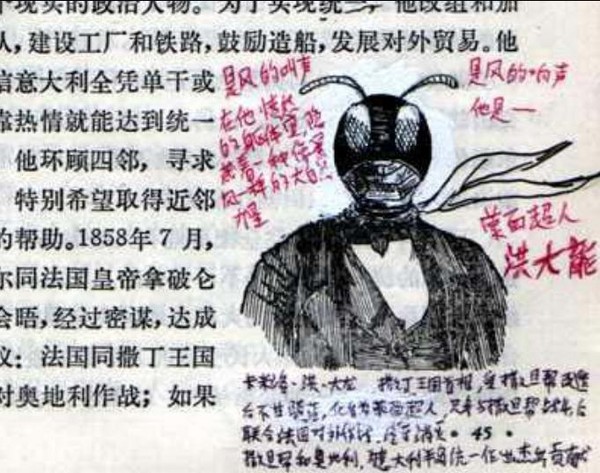 个现实的政治人物。为了实现统一，他改组和加
人，建设工厂和铁路，鼓励造船，发展对外贸易。他
信意大利全凭单干或
靠热情就能达到统一
他环顾四邻，寻求
特别希望取得近邻
的帮助。1858年7月，
尔同法国皇帝拿破仑
会晤，经过密谋，达成
议：法国同撒丁王国
对奥地利作战；如果
是风的叫声
在他愤怒
的躯体里，隐
藏着一种像暴
风一样的大自然
力量
是风的响声
他是一
蒙面超人
洪大龍
卡米洛·洪·大龙 撒丁王国首相，
台 化身为蒙面超人，
联合法国对外作战，
· 45 ·
和奥地利， 意大利 统一作出杰出贡献